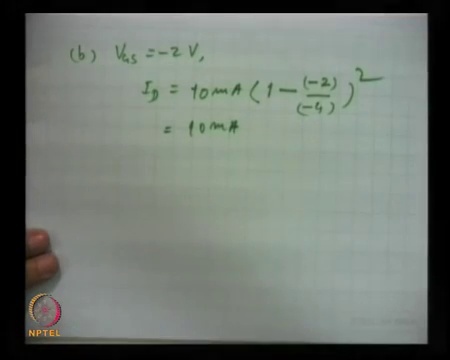 (b) V_GS = -2 V,
I_D = 10 mA (1 - (-2)/(-4))^2
= 10 mA
NPTEL